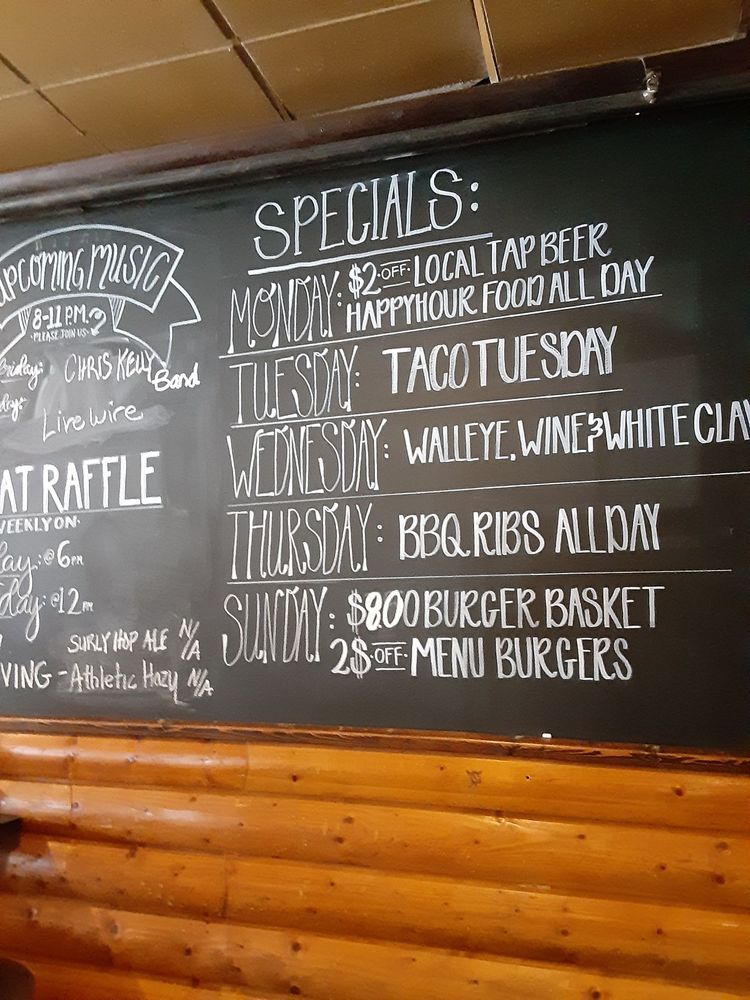 UPCOMING MUSIC
8-11 P.M.
·PLEASE JOIN US·
Friday: CHRIS KELLY Band
Livewire
AT RAFFLE
WEEKLY ON·
@ 6PM
@12PM
SURLY HOP ALE N/A
VING -Athletic Hazy N/A
SPECIALS:
MONDAY: $2·OFF·LOCAL TAP BEER
HAPPYHOUR FOOD ALL DAY
TUESDAY: TACO TUESDAY
WEDNESDAY: WALLEYE, WINE & WHITE CLAW
THURSDAY: BBQ RIBS ALL DAY
SUNDAY: $8.00 BURGER BASKET
2$·OFF·MENU BURGERS